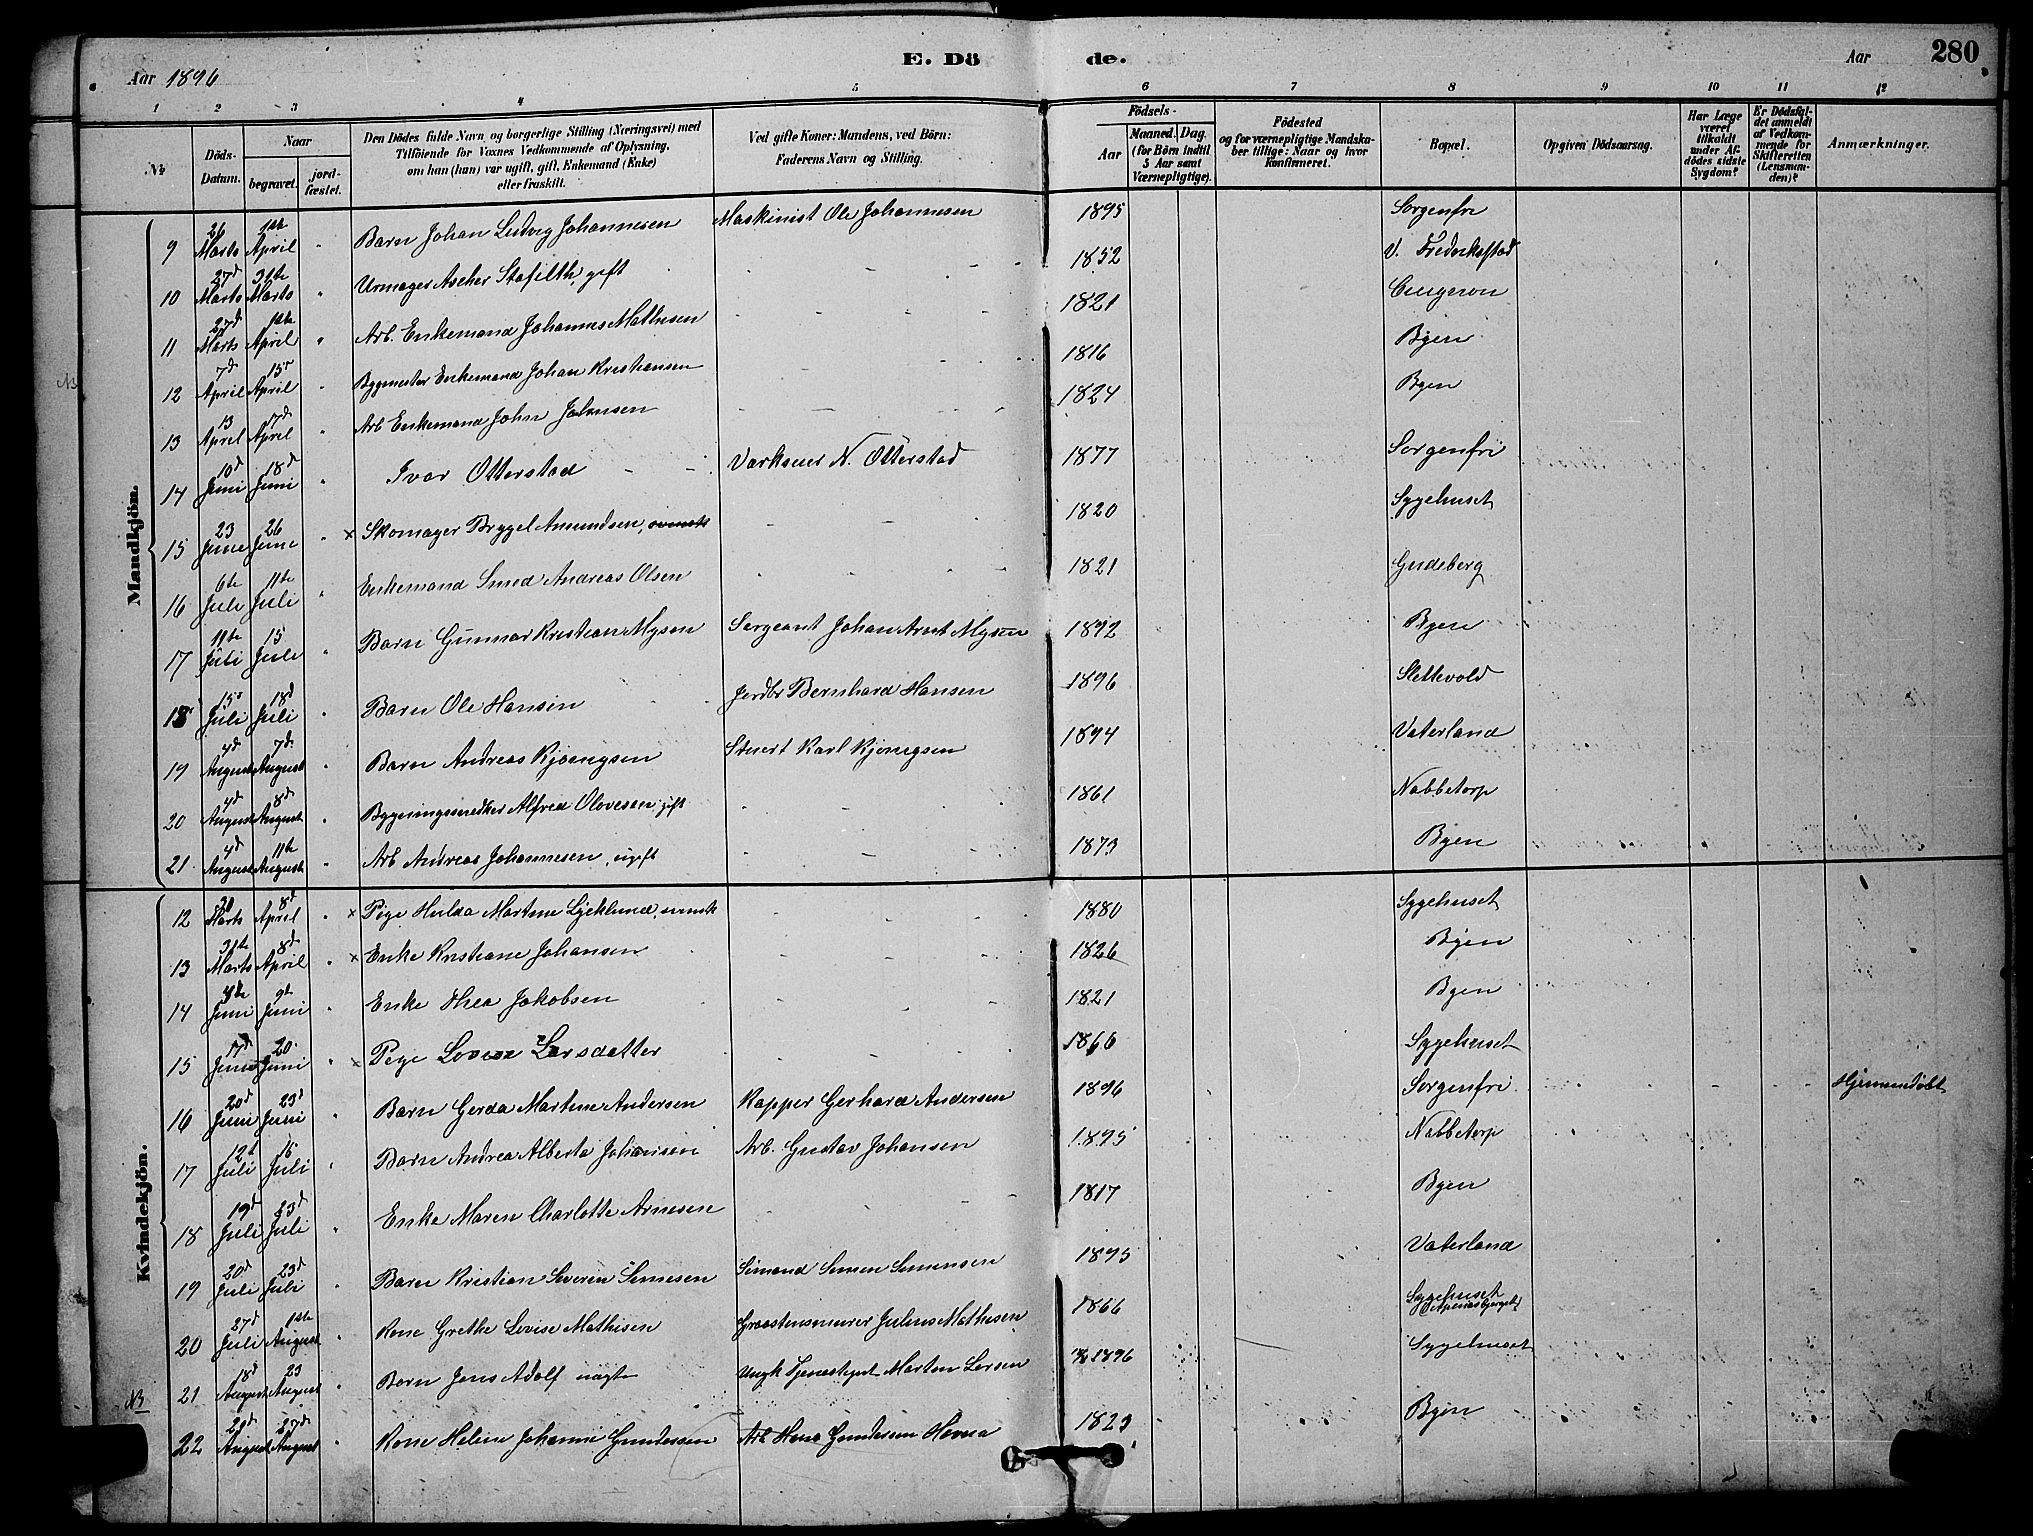 Aar 1896
E. Dö
de.
Aar
280
1 2 3 4 5 6 7 8 9 10 11 12
№
Döds-Datum.
Naar
begravet.
jord-fæstet.
Den Dödes fulde Navn og borgerlige Stilling (Næringsvei) med
Tilföiende for Voxnes Vedkommende af Oplysning,
om han (hun) var ugift, gift, Enkemand (Enke)
eller fraskilt.
Ved gifte Koner: Mandens, ved Börn:
Faderens Navn og Stilling.
Födsels-
Aar
Maaned. Dag.
(for Börn indtil
5 Aar samt
Værnepligtige).
Födested
og for værnepligtige Mandska-
ber tillige: Naar og hvor
konfirmeret.
Bopæl.
Opgiven Dödsaarsag.
Har Læge
været
tilkaldt
under Af-
dödes sidste
Sygdom?
Er Dödsfal-
det anmeldt
af Vedkom-
mende for
Skifteretten
(Lensman-
den)?
Anmærkninger.
Mandkjön.
9 26 Marts 1ste April Barn Johan Ludvig Johannesen Maskinist Ole Johannesen 1895 Sorgenfri
10 27d Marts 31te Marts Urmager Ascher gift 1852 V. Frederikstad
11 27d Marts 1ste April Arb. Enkemand Johannes Mathisen 1821
12 7d April 15d April Bygmester Enkemand Johan Kristiansen 1816 Byen
13 13 April 17d April Arb Enkemand John Johnsen 1824 Byen
14 10d Juni 18d Juni Ivar Otterstad N. Otterstad 1877 Sorgenfri
15 23 June 26 June x Skomager Brygel Amundsen, svensk 1820 Sygehuset
16 6te Juli 11te Juli Enkemand Smed Andreas Olsen 1821 Gudeberg
17 11te Juli 15 Juli Barn Gunnar Kristian Mysen Sergeant Johan Arnt Mysen 1892 Byen
18 15d Juli 18d Juli Barn Ole Hansen Jerdbr Bernhard Hansen 1896 Slettevold
19 4d August 7d August Barn Andreas Karl 1894 Vaterland
20 4d August 8d August Bygningssnedker Alfred Olovesen, gift 1861 Nabbetorp
21 4d August 11te August Arb Andreas Johannesen, ugift 1873 Byen
Kvindekjön.
12 Marts 8d April x Pige Hulda Martine svensk 1880 Sygehuset
13 31te Marts 8d April x Enke Kristiane Johansen 1826 Byen
14 4de Juni 9de Juni Enke Thea Jakobsen 1821 Byen
15 17d Juni 20 Juni x Pige Lovise Larsdatter 1866 Sygehuset
16 20d Juni 23d Juni Barn Gerda Martine Andersen Kapper Gerhard Andersen 1896 Sorgenfri Hjemmedöbt
17 12t Juli 16 Juli Barn Andrea Alberta Johansen Arb. Gustav Johansen 1895 Nabbetorp
18 19d Juli 23d Juli Enke Maren Charlotte Arnesen 1817 Byen
19 20d Juli 23d Juli Barn Kristian Severin Simesen Sömand Simen Simensen 1895 Vaterland
20 27d Juli 1ste August Kone Grethe Lovise Mathisen Graastensmurer Julius Mathisen 1866 Sygehuset
NB 21 18d August 23 August Barn Jens Adolf Ungk Tjenestegut Martin Larsen 1896 Sygehuset
22 21d August 27d August Kone Helene Johanne Gundersen Arb Hans Gundersen 1823 Byen